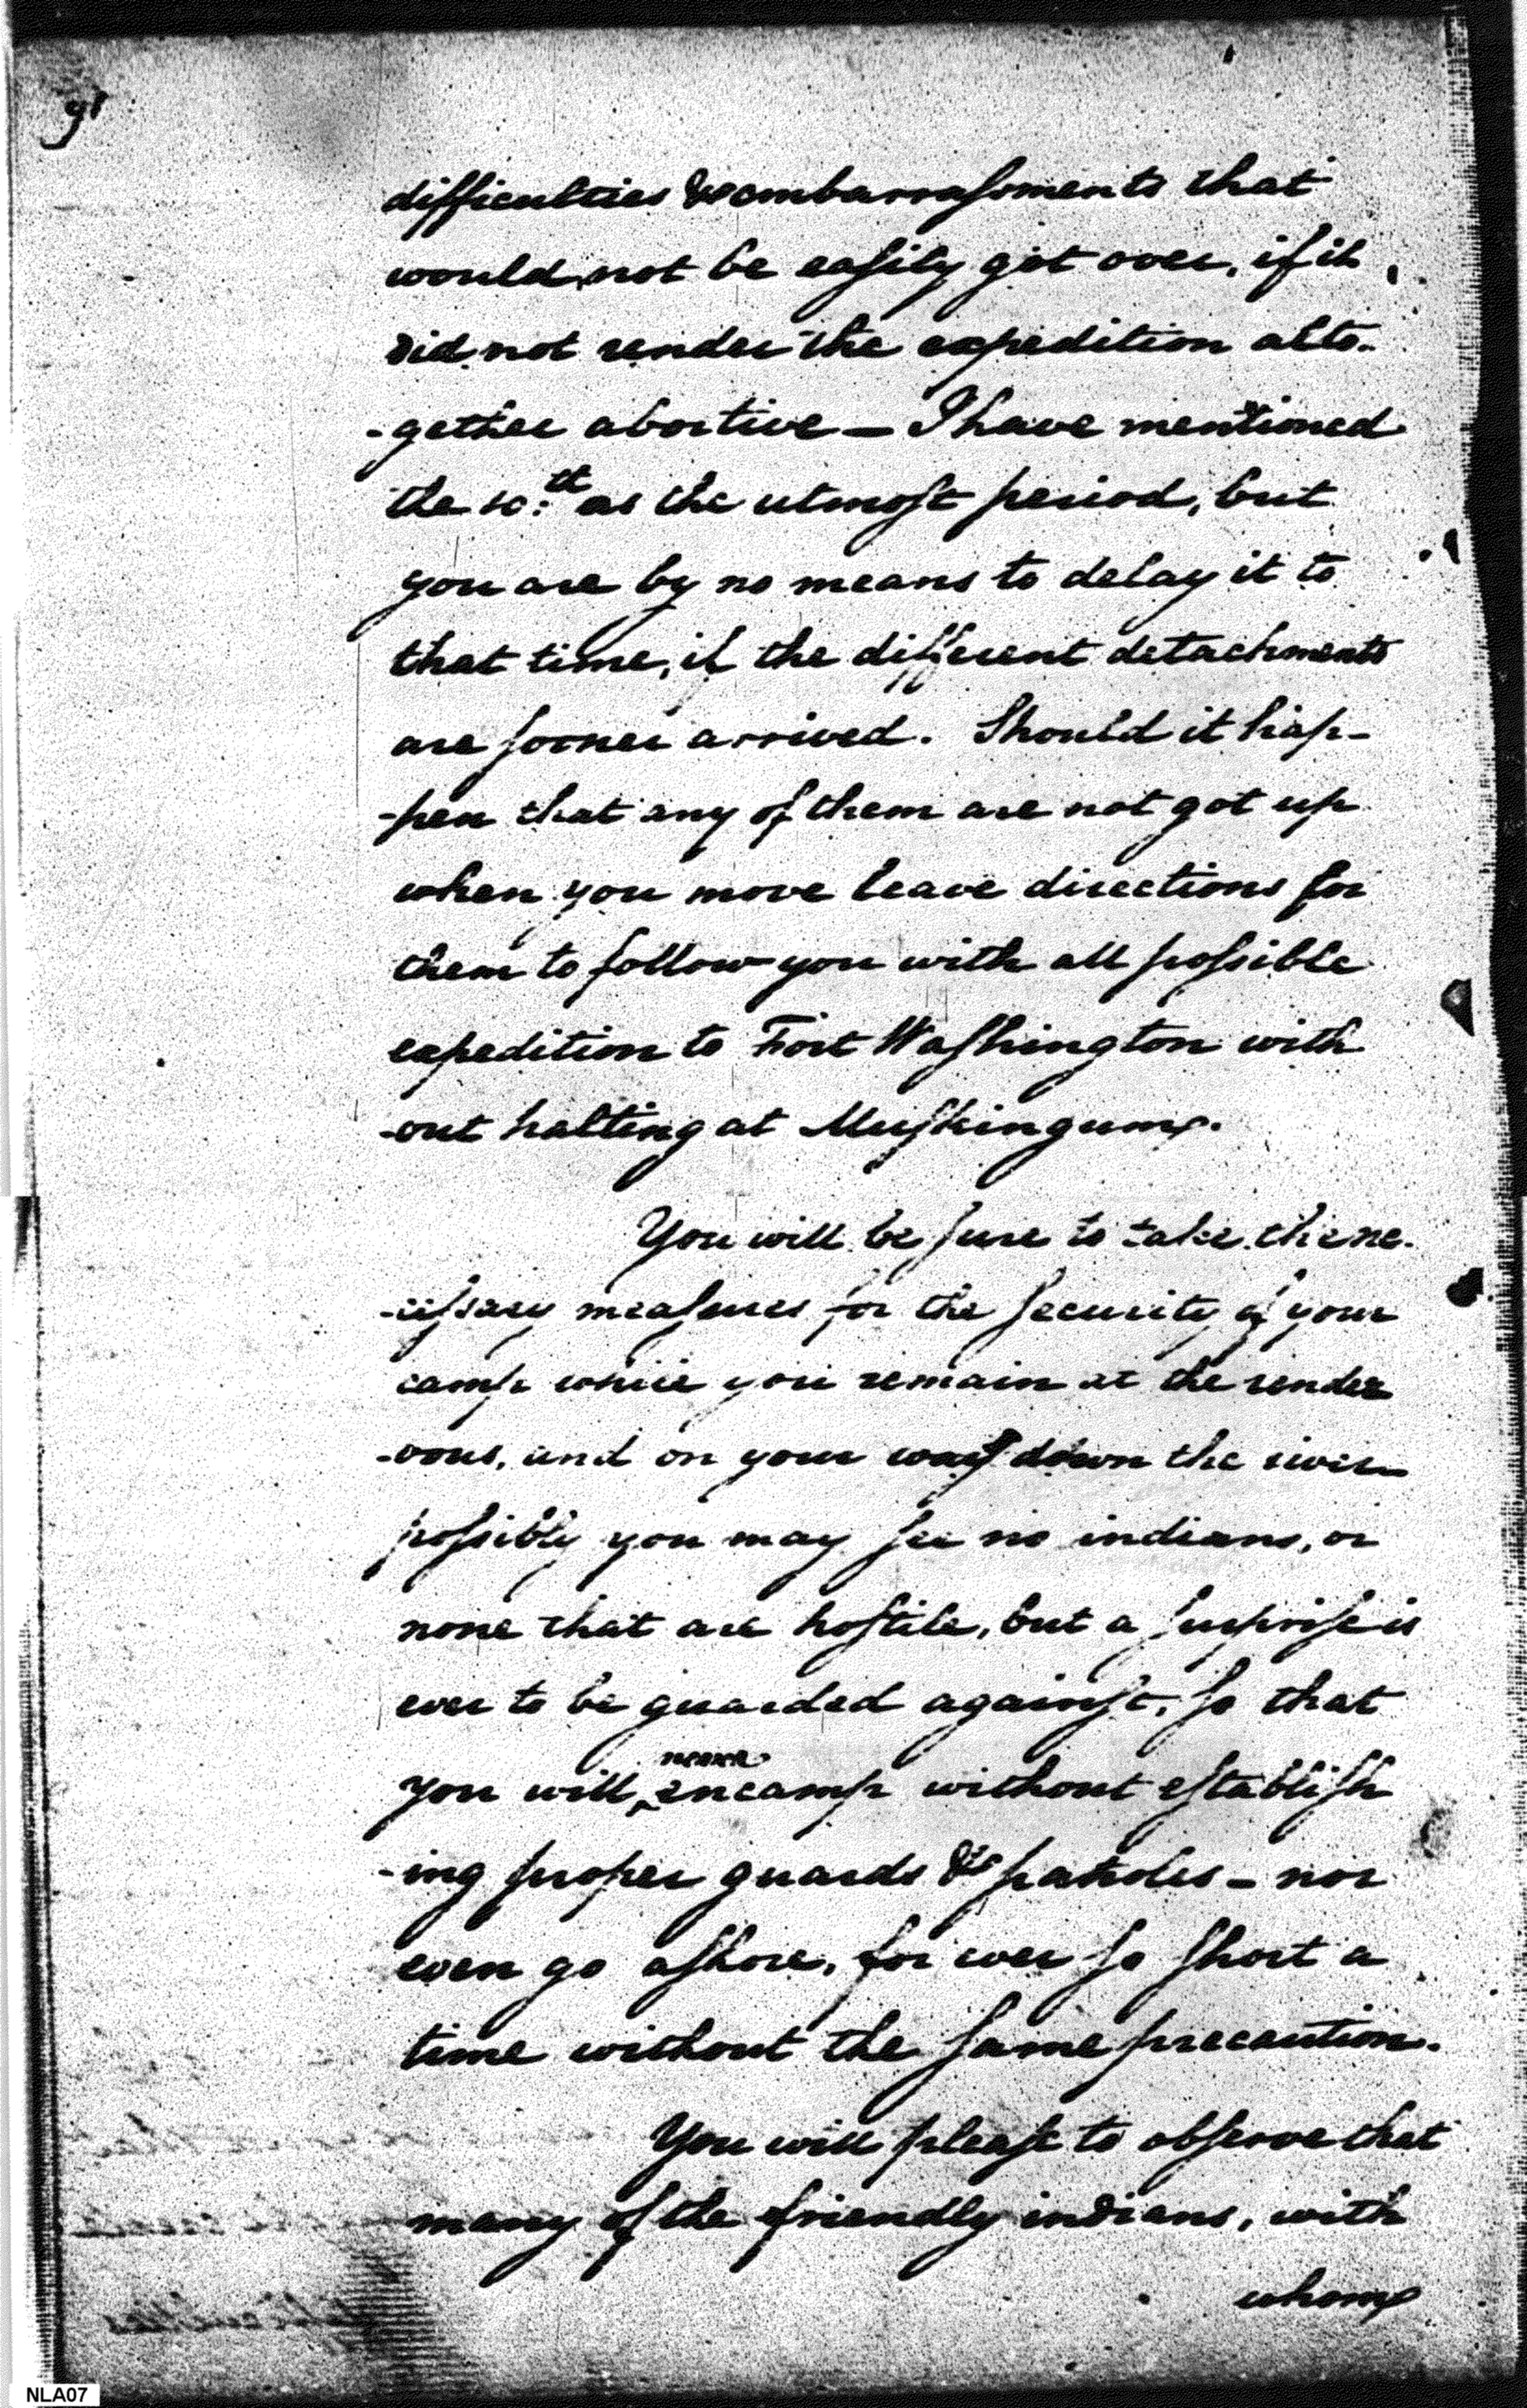 91
difficulties & embarrassments that
would not be easily got over, if it
did not render the expedition alto-
-gether abortive — I have mentioned
the 10:th as the utmost period, but
you are by no means to delay it to
that time, if the different detachments
are sooner arrived. Should it hap-
-pen that any of them are not got up
when you move leave directions for
them to follow you with all possible
expedition to Fort Washington with
-out halting at Muskingum.
You will be sure to take the ne-
-cessary measures for the security of your
camp while you remain at the rendez
-vous, and on your way down the river
possibly you may see no indians, or
none that are hostile, but a surprise is
ever to be guarded against, so that
none
you will ^ encamp without establish
-ing proper guards & patroles — nor
even go ashore, for ever so short a
time without the same precaution.
You will please to observe that
many of the friendly indians, with
whom
NLA07